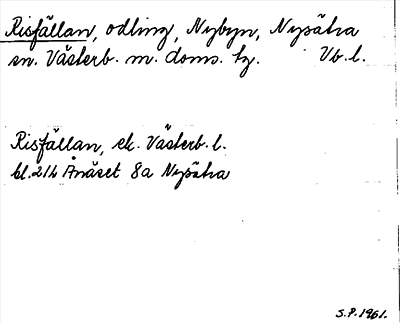 Risfällan, odling, Nybyn, Nysätra
sn. Västerb. m. doms. hg. Vb.l.
Risfällan, ek. Västerb. l.
bl. 21h Ånäset 8a Nysätra
S.P. 1961.